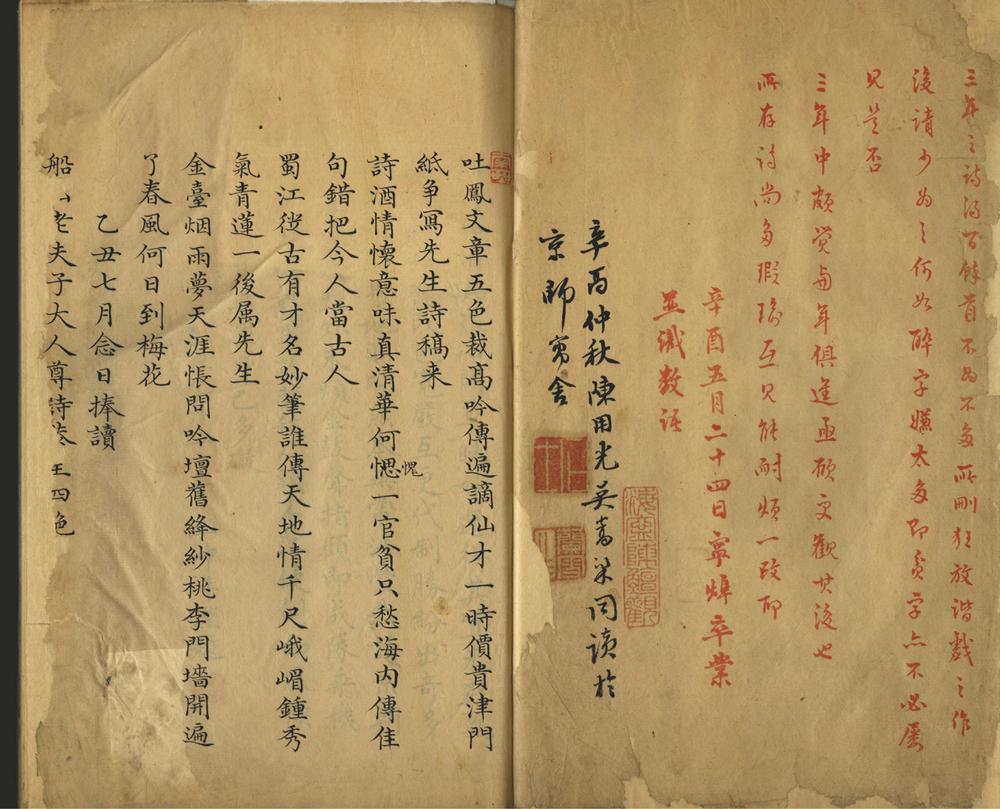 三年之詩得百餘首不為不多所刪狂放諧戲之作
後請少為之何如醉字嫌太多即貧字亦不必屢
見是否
三年中頗覺與年俱進亟欲更觀其後也
所存詩尚多瑕瑜互見能耐煩一改即
辛酉五月二十四日寧焯卒業
並識数語
辛酉仲秋陳用光吳嵩梁同讀於
京師寓舍
吐鳳文章五色裁高吟傳遍謫仙才一時價貴津門
紙爭寫先生詩稿来
詩酒情懷意味真清華何愧一官貧只愁海内傳佳
愧
句錯把今人當古人
蜀江從古有才名妙筆誰傳天地情千尺峨嵋鍾秀
氣青蓮一後属先生
金臺烟雨夢天涯悵問吟壇舊絳紗桃李門墻開遍
了春風何日到梅花
乙丑七月念日捧讀
船山老夫子大人尊詩 王四色